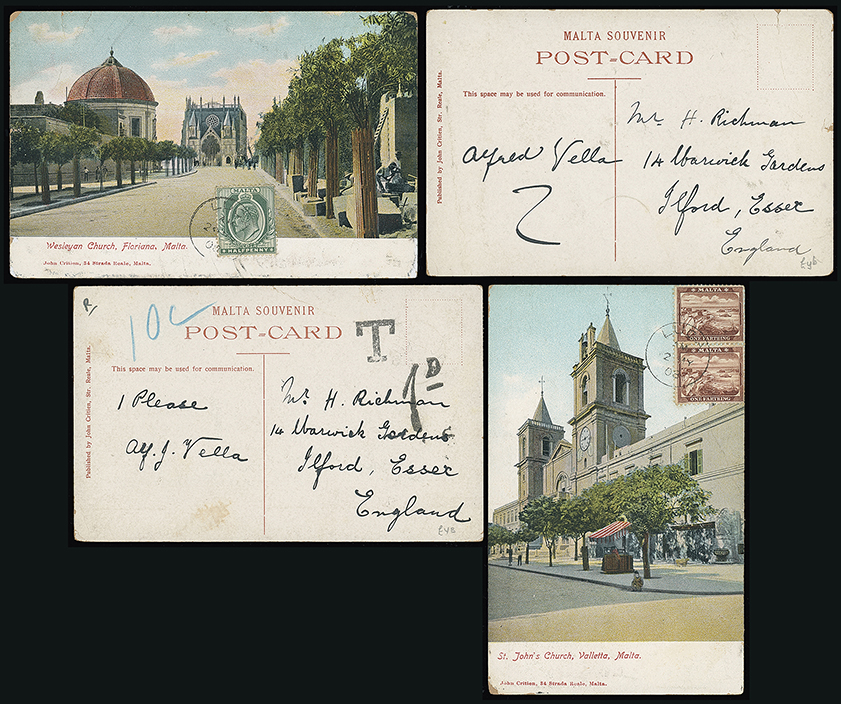 MALTA
HALFPENNY
Wesleyan Church, Floriana, Malta.
John Critien, 34 Strada Reale, Malta.
MALTA SOUVENIR
POST-CARD
This space may be used for communication.
Published by John Critien, Str. Reale, Malta.
Alfred Vella
2
Mr. H. Richman
14 Warwick Gardens
Ilford, Essex
England
R/
10c
MALTA SOUVENIR
POST-CARD
T
1D
This space may be used for communication.
Published by John Critien, Str. Reale, Malta.
1 Please
Alf. J. Vella
Mr. H. Richman
14 Warwick Gardens
Ilford, Essex
England
MALTA
ONE FARTHING
MALTA
ONE FARTHING
St. John's Church, Valletta, Malta.
John Critien, 34 Strada Reale, Malta.